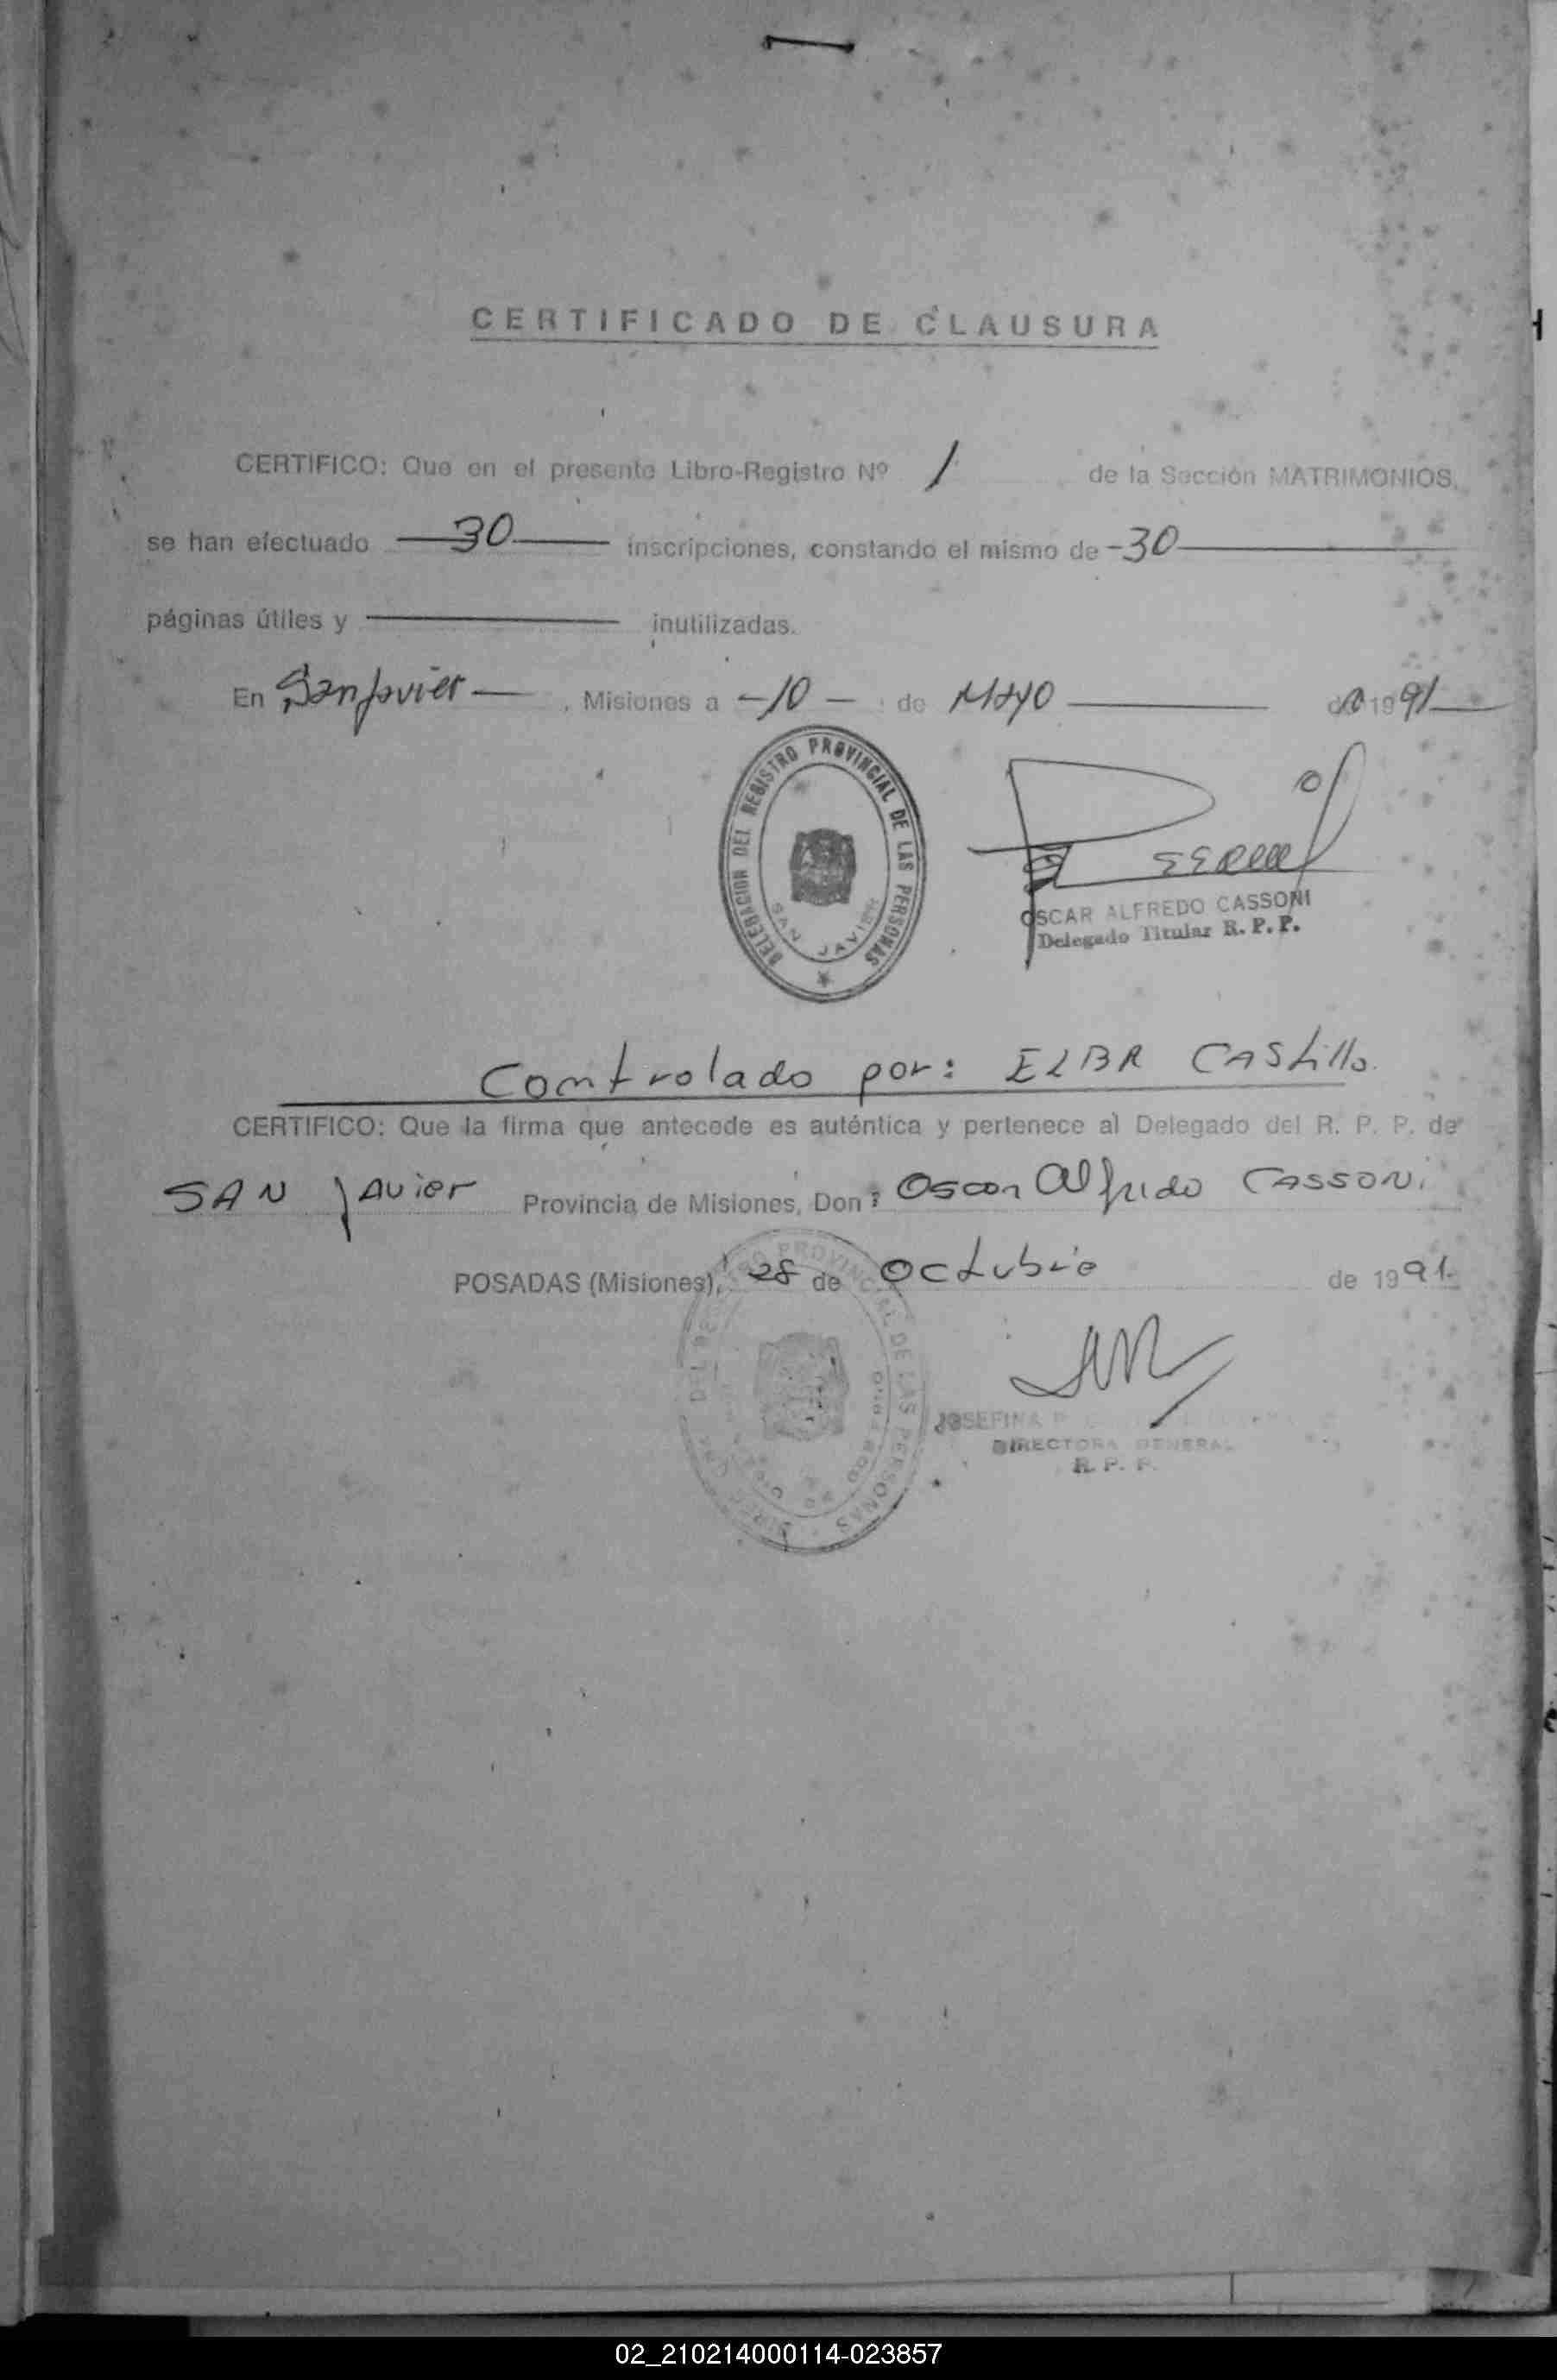 CERTIFICADO DE CLAUSURA
CERTIFICO: Que en el presente Libro-Registro Nº 1 de la Sección MATRIMONIOS,
se han efectuado 30 inscripciones, constando el mismo de -30
páginas útiles y inutilizadas.
En San Javier , Misiones a -10- de MAYO de 1991
DELEGACION DEL REGISTRO PROVINCIAL DE LAS PERSONAS
SAN JAVIER
OSCAR ALFREDO CASSONI
Delegado Titular R. P. P.
Controlado por: ELBA CAStillo.
CERTIFICO: Que la firma que antecede es auténtica y pertenece al Delegado del R. P. P. de
SAN Javier Provincia de Misiones, Don: Oscar Alfredo CASSONi
POSADAS (Misiones), 28 de Octubre de 1991.
PROVINCIAL DE LAS PERSONAS
JOSEFINA
DIRECTORA GENERAL
R. P. P.
02_210214000114-023857